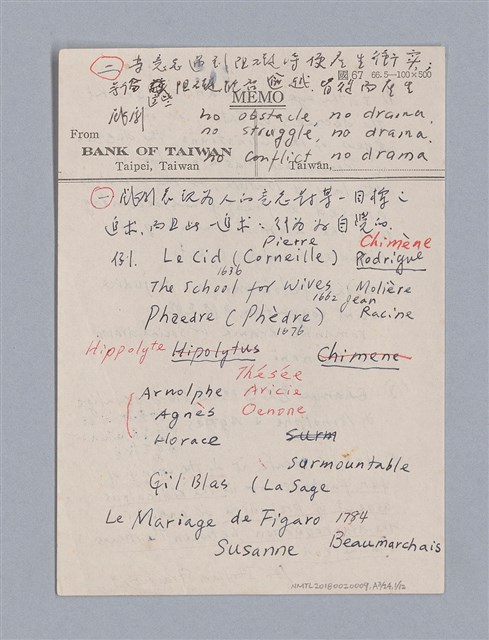 ㈡ 當意志遇到阻礙時便產生衝突,
國 67 66.5—100×500
阻礙能否逾越, 皆從而產生
這些
戲劇
MEMO
no obstacle, no drama.
From
no struggle, no drama.
BANK OF TAIWAN
no conflict no drama
Taipei, Taiwan
Taiwan,
㈠ 戲劇表現為人的意志對某一目標之
追求, 而且此一追求之行為為自覺的.
Pierre Chimène
例. Le Cid (Corneille) Rodrigue
1636
The School for Wives Molière
1662 Jean
Phaedre (Phèdre) Racine
1676
Hippolyte Hipolytus Chimene
Thésée
Arnolphe Aricie
Agnès Oenone
Horace Surm
surmountable
Gil Blas (La Sage
Le Mariage de Figaro 1784
Susanne Beaumarchais
NMTL20180020009.A3/24.1/12